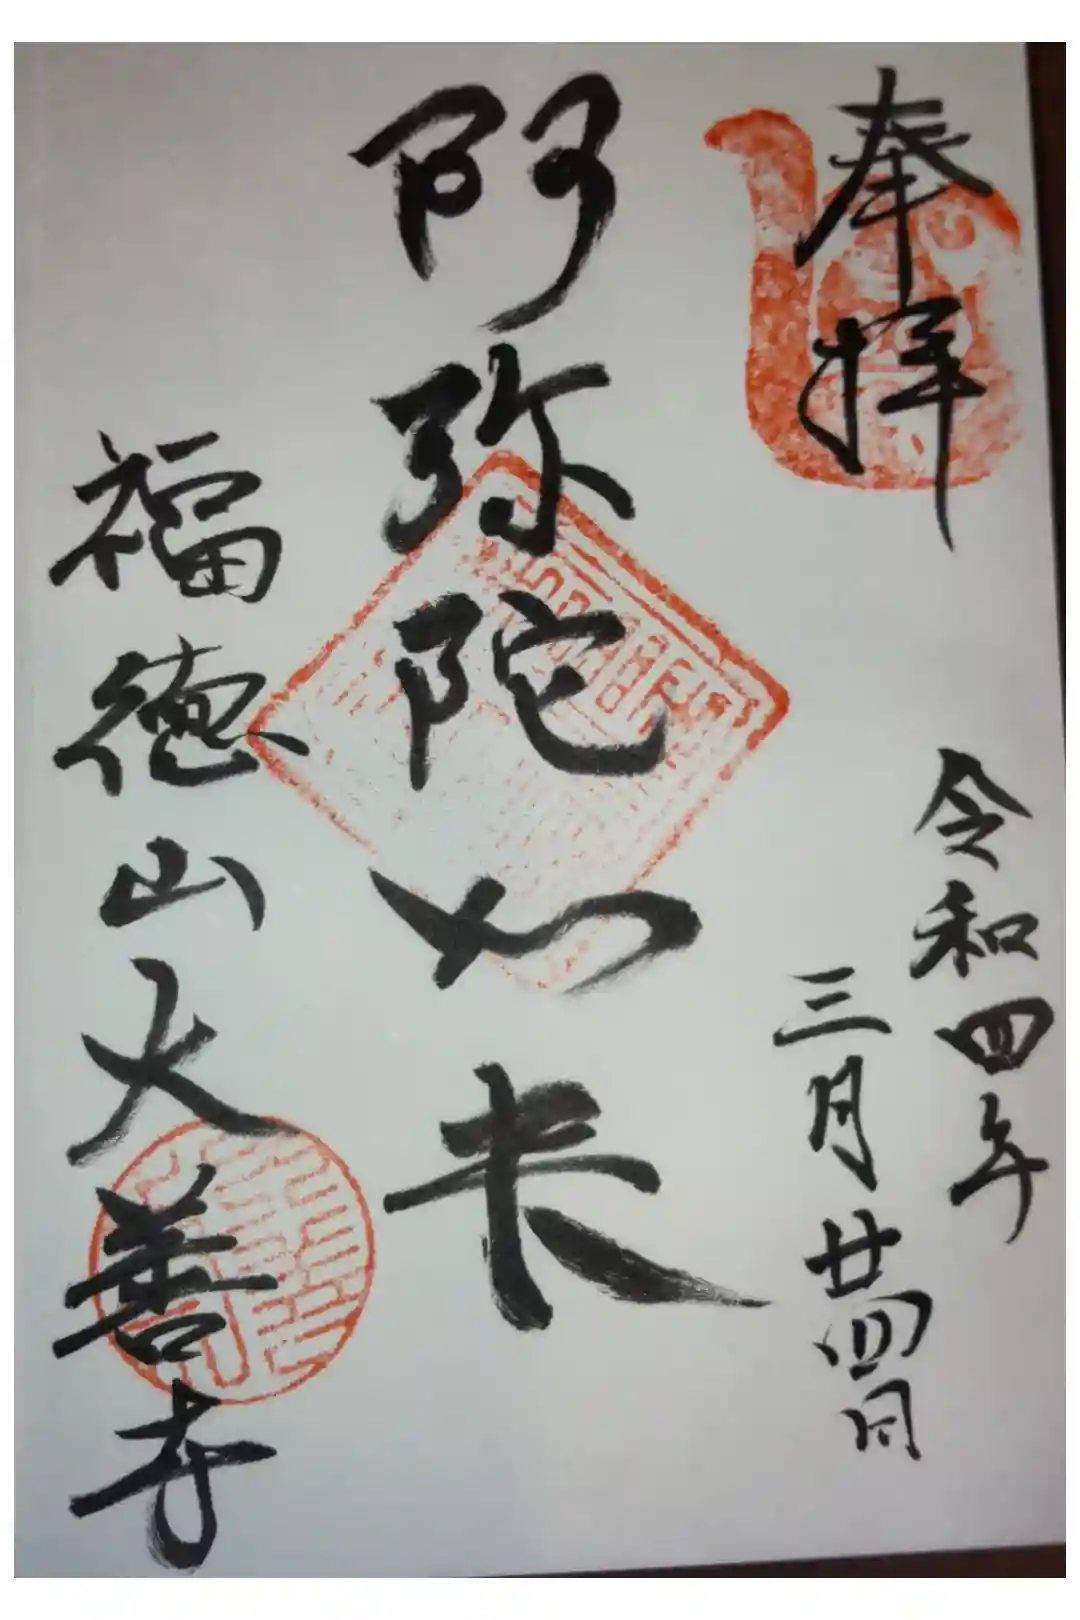 奉拝
令和四年
三月廿四日
阿弥陀如来
福徳山大善寺